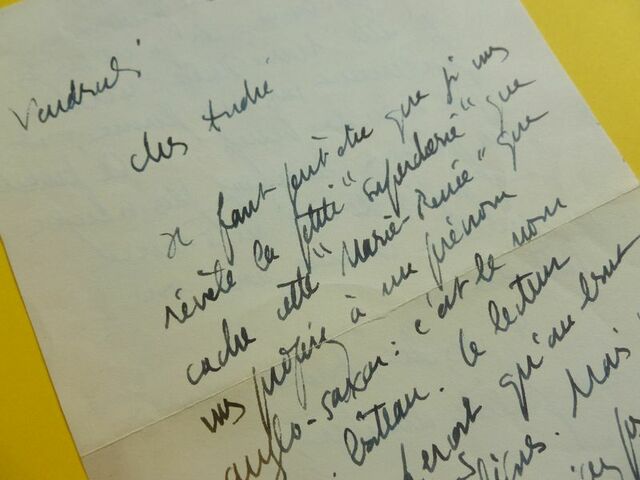 Vendredi
cher André
Il faut peut-être que je vous
révèle la petite "supercherie" que
cache cette "Marie-Renée" que
vous préfère à un prénom
anglo-saxon : c'est le nom
bateau. Le lecteur
qu'au bout
lignes. Mais